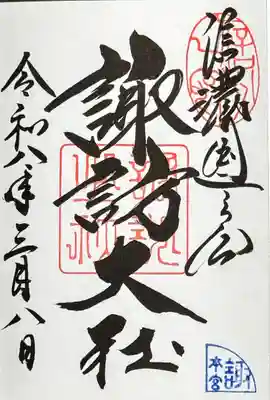 信濃國一之宮
諏訪大社
令和八年三月八日
諏訪
本宮